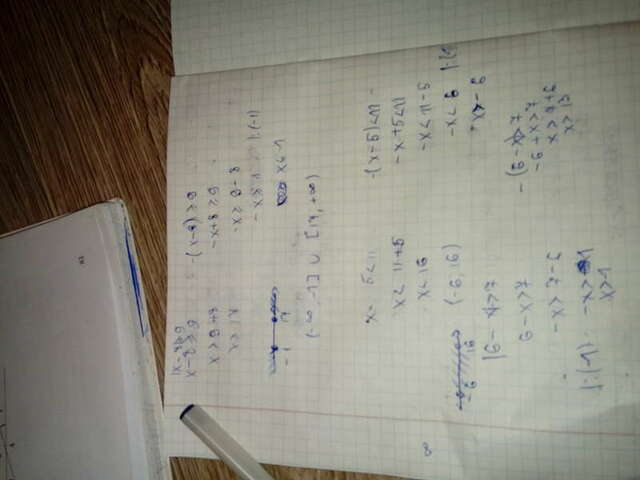 |x-8|≥9
x-8≥9
x≥9+8
x≥17
-(x-8)≥9
-x+8≥9
-x≥9-8
-x≥1 |:(-1)
x≤-1
-1 17
(-∞,-1] ∪ [17,+∞)
x- 5<11
x< 11+5
x<16
-(x-5)<11
-x+5<11
-x<11-5
-x<6 |:(-1
x>-6
8
-6 16
(-6,16)
|6-x|>7
6-x>7
-x>7-6
|:(-1) -x>1
x>1
-(6-x)>7
-6+x>7
x>7+6
x>13